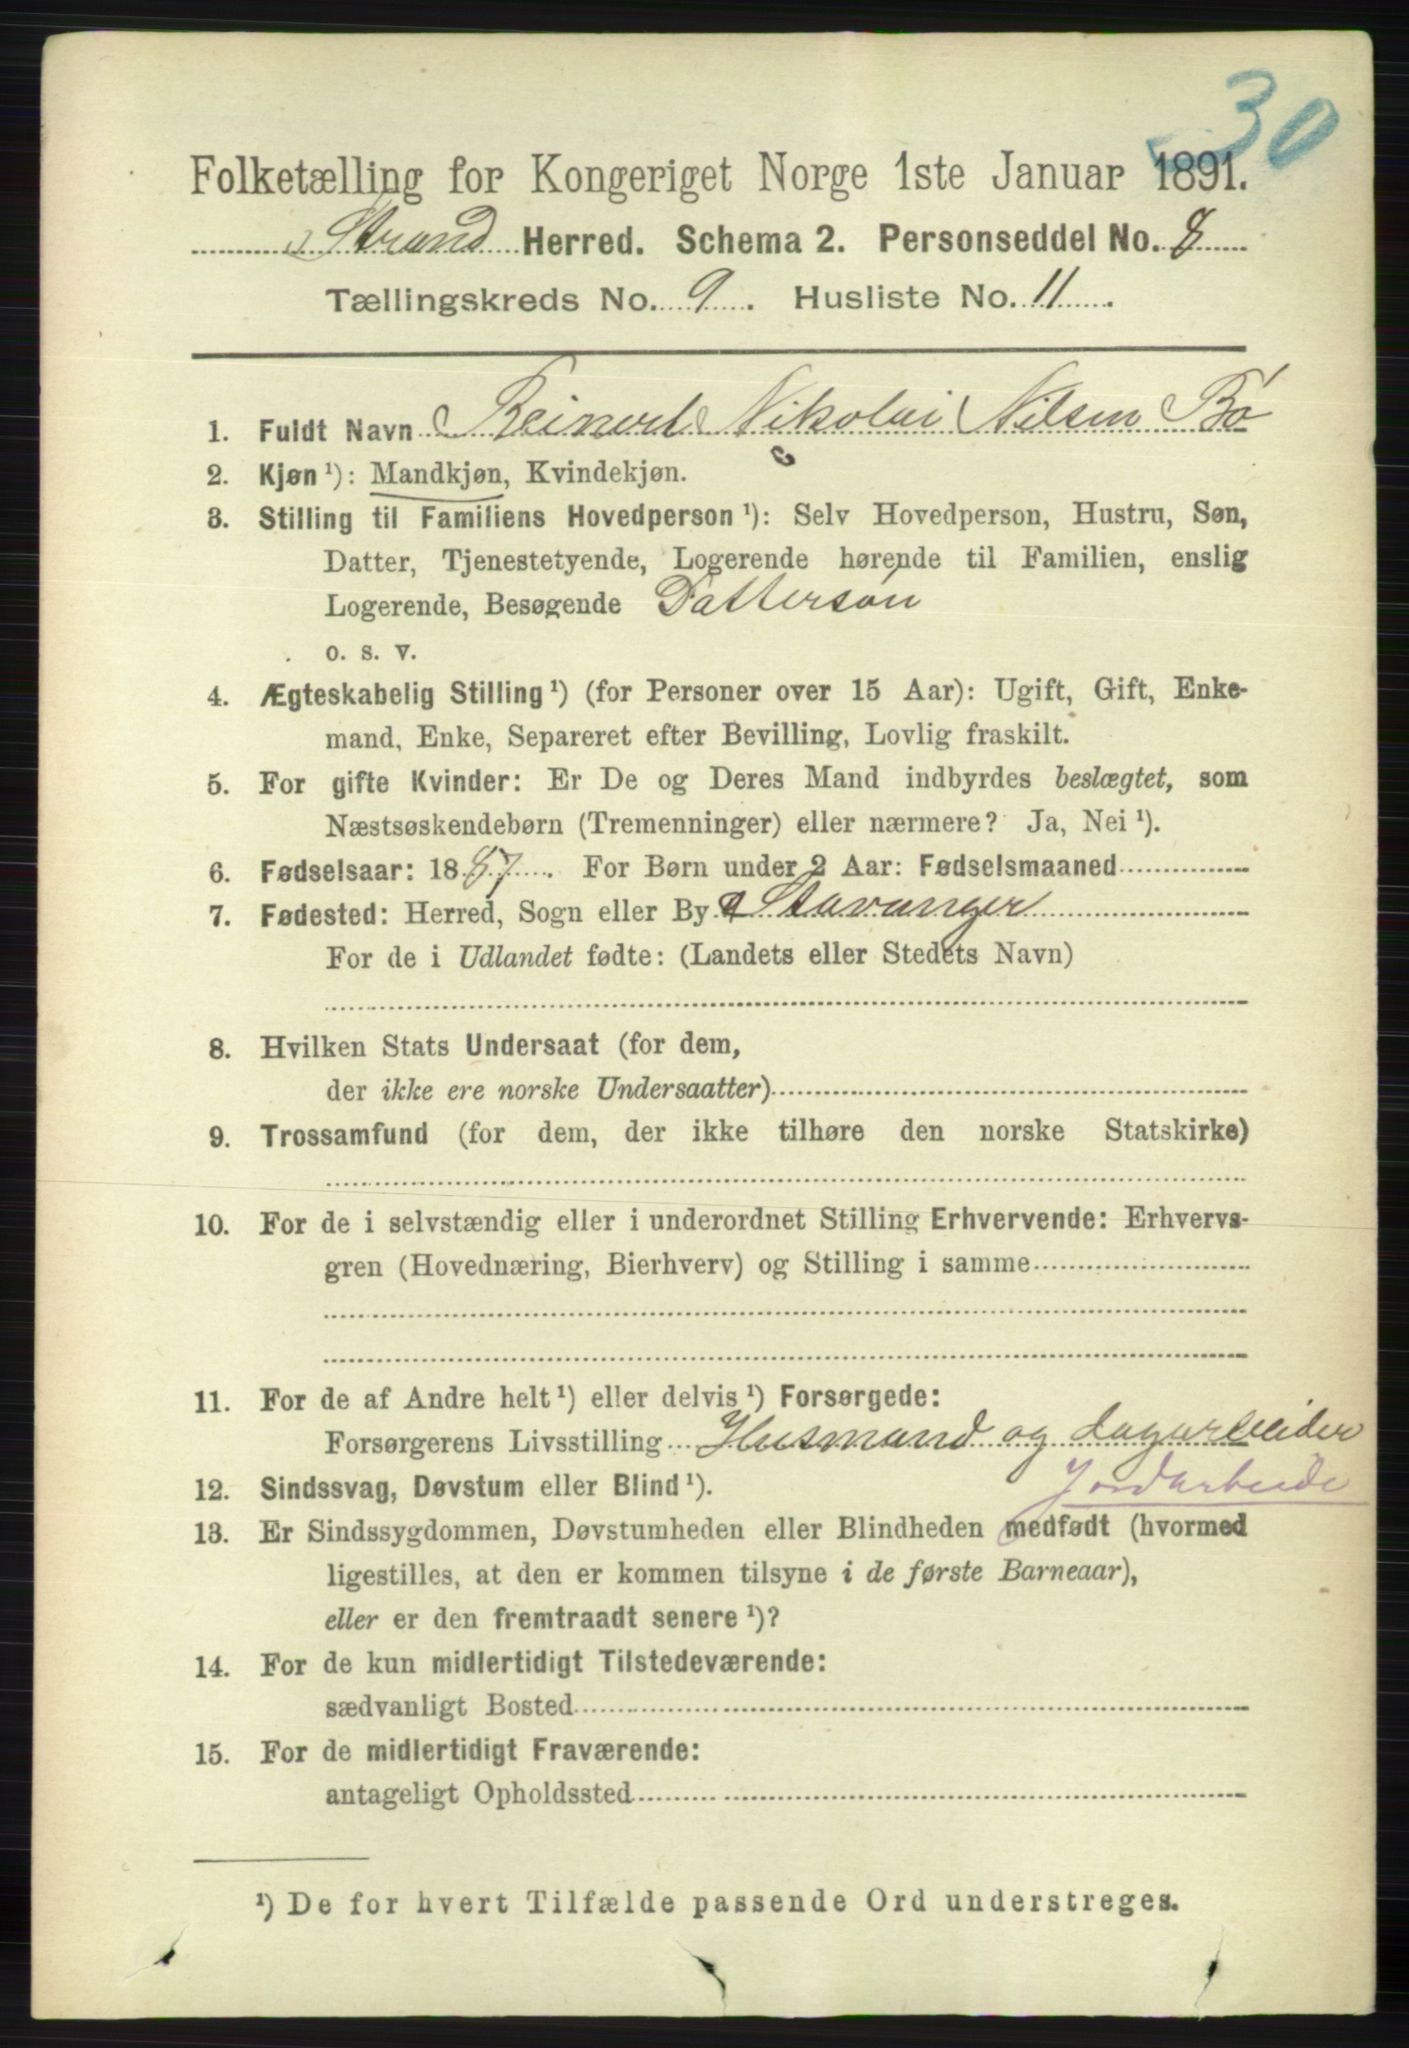 30
Folketælling for Kongeriget Norge 1ste Januar 1891.
Strand Herred. Schema 2. Personseddel No. 8
Tællingskreds No. 9. Husliste No. 11.
1. Fuldt Navn Reinert Nikolai Nilsen Bø
2. Kjøn ¹): Mandkjøn, Kvindekjøn.
3. Stilling til Familiens Hovedperson ¹): Selv Hovedperson, Hustru, Søn,
Datter, Tjenestetyende, Logerende hørende til Familien, enslig
Logerende, Besøgende Dattersøn
o. s. v.
4. Ægteskabelig Stilling ¹) (for Personer over 15 Aar): Ugift, Gift, Enke-
mand, Enke, Separeret efter Bevilling, Lovlig fraskilt.
5. For gifte Kvinder: Er De og Deres Mand indbyrdes beslægtet, som
Næstsøskendebørn (Tremenninger) eller nærmere? Ja, Nei ¹).
6. Fødselsaar: 1887. For Børn under 2 Aar: Fødselsmaaned
7. Fødested: Herred, Sogn eller By Stavanger
For de i Udlandet fødte: (Landets eller Stedets Navn)
8. Hvilken Stats Undersaat (for dem,
der ikke ere norske Undersaatter)
9. Trossamfund (for dem, der ikke tilhøre den norske Statskirke)
10. For de i selvstændig eller i underordnet Stilling Erhvervende: Erhvervs-
gren (Hovednæring, Bierhverv) og Stilling i samme
11. For de af Andre helt ¹) eller delvis ¹) Forsørgede:
Forsørgerens Livsstilling Husmand og dagarbeider
Jordarbeide
12. Sindssvag, Døvstum eller Blind ¹).
13. Er Sindssygdommen, Døvstumheden eller Blindheden medfødt (hvormed
ligestilles, at den er kommen tilsyne i de første Barneaar),
eller er den fremtraadt senere ¹)?
14. For de kun midlertidigt Tilstedeværende:
sædvanligt Bosted
15. For de midlertidigt Fraværende:
antageligt Opholdssted
¹) De for hvert Tilfælde passende Ord understreges.